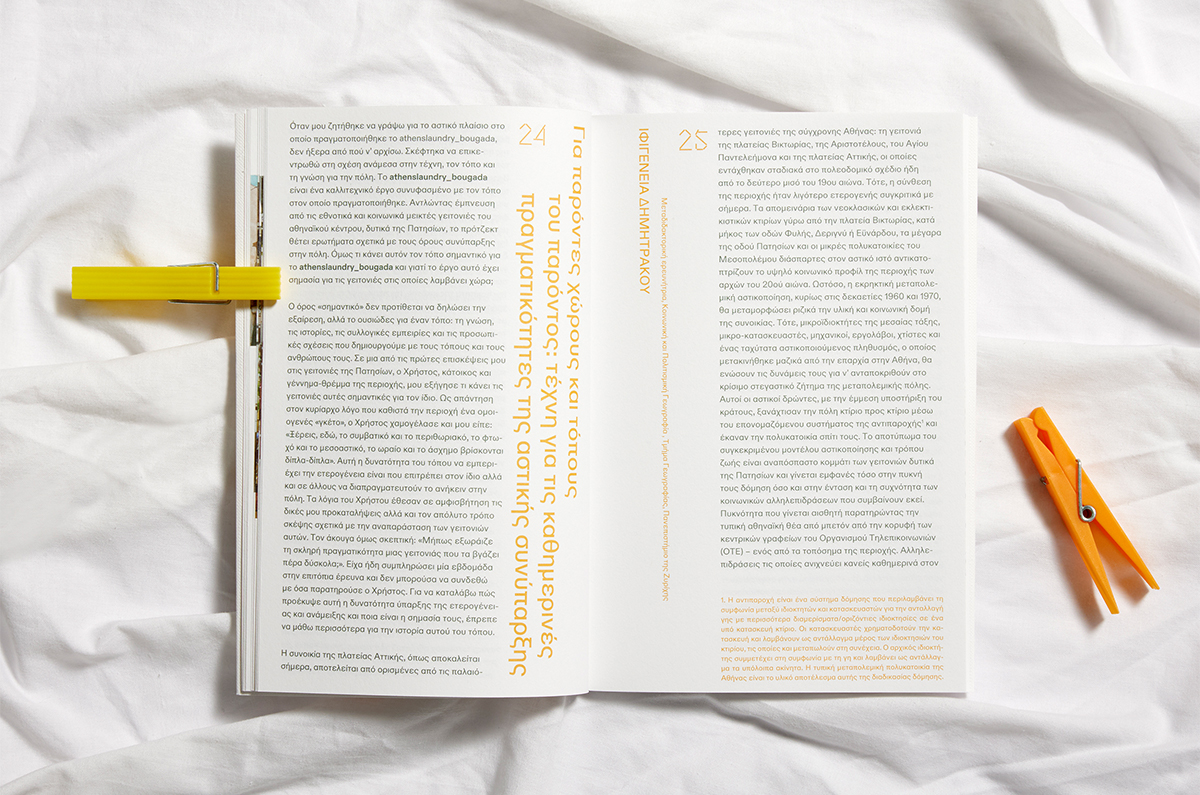 Όταν μου ζητήθηκε να γράψω για το αστικό πλαίσιο στο
οποίο πραγματοποιήθηκε το athenslaundry_bougada,
δεν ήξερα από πού ν' αρχίσω. Σκέφτηκα να επικε-
ντρωθώ στη σχέση ανάμεσα στην τέχνη, τον τόπο και
τη γνώση για την πόλη. Το athenslaundry_bougada
είναι ένα καλλιτεχνικό έργο συνυφασμένο με τον τόπο
στον οποίο πραγματοποιήθηκε. Αντλώντας έμπνευση
από τις εθνοτικά και κοινωνικά μεικτές γειτονιές του
αθηναϊκού κέντρου, δυτικά της Πατησίων, το πρότζεκτ
θέτει ερωτήματα σχετικά με τους όρους συνύπαρξης
στην πόλη. Όμως τι κάνει αυτόν τον τόπο σημαντικό για
το athenslaundry_bougada και γιατί το έργο αυτό έχει
σημασία για τις γειτονιές στις οποίες λαμβάνει χώρα;
Ο όρος «σημαντικό» δεν προτίθεται να δηλώσει την
εξαίρεση, αλλά το ουσιώδες για έναν τόπο: τη γνώση,
τις ιστορίες, τις συλλογικές εμπειρίες και τις προσωπι-
κές σχέσεις που δημιουργούμε με τους τόπους και τους
ανθρώπους τους. Σε μια από τις πρώτες επισκέψεις μου
στις γειτονιές της Πατησίων, ο Χρήστος, κάτοικος και
γέννημα-θρέμμα της περιοχής, μου εξήγησε τι κάνει τις
γειτονιές αυτές σημαντικές για τον ίδιο. Ως απάντηση
στον κυρίαρχο λόγο που καθιστά την περιοχή ένα ομοι-
ογενές «γκέτο», ο Χρήστος χαμογέλασε και μου είπε:
«Ξέρεις, εδώ, το συμβατικό και το περιθωριακό, το φτω-
χό και το μεσοαστικό, το ωραίο και το άσχημο βρίσκονται
δίπλα-δίπλα». Αυτή η δυνατότητα του τόπου να εμπερι-
έχει την ετερογένεια είναι που επιτρέπει στον ίδιο αλλά
και σε άλλους να διαπραγματευτούν το ανήκειν στην
πόλη. Τα λόγια του Χρήστου έθεσαν σε αμφισβήτηση τις
δικές μου προκαταλήψεις αλλά και τον απόλυτο τρόπο
σκέψης σχετικά με την αναπαράσταση των γειτονιών
αυτών. Τον άκουγα όμως σκεπτική: «Μήπως εξωράιζε
τη σκληρή πραγματικότητα μιας γειτονιάς που τα βγάζει
πέρα δύσκολα;». Είχα ήδη συμπληρώσει μία εβδομάδα
στην επιτόπια έρευνα και δεν μπορούσα να συνδεθώ
με όσα παρατηρούσε ο Χρήστος. Για να καταλάβω πώς
προέκυψε αυτή η δυνατότητα ύπαρξης της ετερογένει-
ας και ανάμειξης και ποια είναι η σημασία τους, έπρεπε
να μάθω περισσότερα για την ιστορία αυτού του τόπου.
Η συνοικία της πλατείας Αττικής, όπως αποκαλείται
σήμερα, αποτελείται από ορισμένες από τις παλαιό-
24
Για παρόντες χώρους και τόπους
του παρόντος: τέχνη για τις καθημερινές
πραγματικότητες της αστικής συνύπαρξης
ΙΦΙΓΕΝΕΙΑ ΔΗΜΗΤΡΑΚΟΥ
Μεταδιδακτορική ερευνήτρια, Κοινωνική και Πολιτισμική Γεωγραφία, Τμήμα Γεωγραφίας, Πανεπιστήμιο της Ζυρίχης
25
τερες γειτονιές της σύγχρονης Αθήνας: τη γειτονιά
της πλατείας Βικτωρίας, της Αριστοτέλους, του Αγίου
Παντελεήμονα και της πλατείας Αττικής, οι οποίες
εντάχθηκαν σταδιακά στο πολεοδομικό σχέδιο ήδη
από το δεύτερο μισό του 19ου αιώνα. Τότε, η σύνθεση
της περιοχής ήταν λιγότερο ετερογενής συγκριτικά με
σήμερα. Τα απομεινάρια των νεοκλασικών και εκλεκτι-
κιστικών κτιρίων γύρω από την πλατεία Βικτωρίας, κατά
μήκος των οδών Φυλής, Δεριγνύ ή Εϋνάρδου, τα μέγαρα
της οδού Πατησίων και οι μικρές πολυκατοικίες του
Μεσοπολέμου διάσπαρτες στον αστικό ιστό αντικατο-
πτρίζουν το υψηλό κοινωνικό προφίλ της περιοχής των
αρχών του 20ού αιώνα. Ωστόσο, η εκρηκτική μεταπολε-
μική αστικοποίηση, κυρίως στις δεκαετίες 1960 και 1970,
θα μεταμορφώσει ριζικά την υλική και κοινωνική δομή
της συνοικίας. Τότε, μικροϊδιοκτήτες της μεσαίας τάξης,
μικρο-κατασκευαστές, μηχανικοί, εργολάβοι, χτίστες και
ένας ταχύτατα αστικοποιούμενος πληθυσμός, ο οποίος
μετακινήθηκε μαζικά από την επαρχία στην Αθήνα, θα
ενώσουν τις δυνάμεις τους για ν' ανταποκριθούν στο
κρίσιμο στεγαστικό ζήτημα της μεταπολεμικής πόλης.
Αυτοί οι αστικοί δρώντες, με την έμμεση υποστήριξη του
κράτους, ξανάχτισαν την πόλη κτίριο προς κτίριο μέσω
του επονομαζόμενου συστήματος της αντιπαροχής¹ και
έκαναν την πολυκατοικία σπίτι τους. Το αποτύπωμα του
συγκεκριμένου μοντέλου αστικοποίησης και τρόπου
ζωής είναι αναπόσπαστο κομμάτι των γειτονιών δυτικά
της Πατησίων και γίνεται εμφανές τόσο στην πυκνή
τους δόμηση όσο και στην ένταση και τη συχνότητα των
κοινωνικών αλληλεπιδράσεων που συμβαίνουν εκεί.
Πυκνότητα που γίνεται αισθητή παρατηρώντας την
τυπική αθηναϊκή θέα από μπετόν από την κορυφή των
κεντρικών γραφείων του Οργανισμού Τηλεπικοινωνιών
(ΟΤΕ) – ενός από τα τοπόσημα της περιοχής. Αλληλε-
πιδράσεις τις οποίες ανιχνεύει κανείς καθημερινά στον
1. Η αντιπαροχή είναι ένα σύστημα δόμησης που περιλαμβάνει τη
συμφωνία μεταξύ ιδιοκτητών και κατασκευαστών για την ανταλλαγή
γης με περισσότερα διαμερίσματα/οριζόντιες ιδιοκτησίες σε ένα
υπό κατασκευή κτίριο. Οι κατασκευαστές χρηματοδοτούν την κα-
τασκευή και λαμβάνουν ως αντάλλαγμα μέρος των ιδιοκτησιών του
κτιρίου, τις οποίες και μεταπωλούν στη συνέχεια. Ο αρχικός ιδιοκτή-
της συμμετέχει στη συμφωνία με τη γη και λαμβάνει ως αντάλλαγ-
μα τα υπόλοιπα ακίνητα. Η τυπική μεταπολεμική πολυκατοικία της
Αθήνας είναι το υλικό αποτέλεσμα αυτής της διαδικασίας δόμησης.